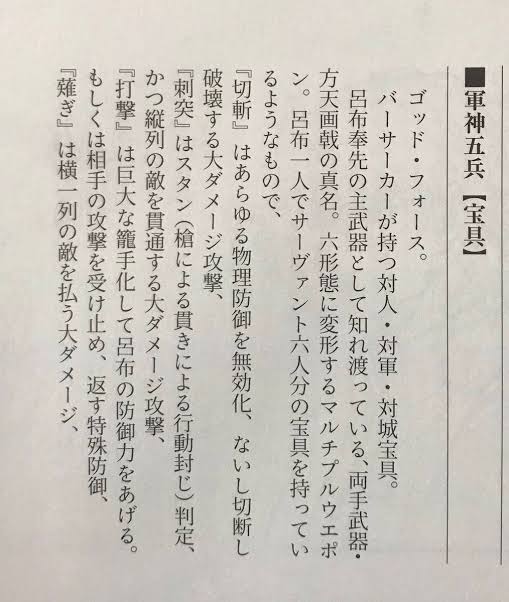 ■軍神五兵【宝具】
ゴッド・フォース。
バーサーカーが持つ対人・対軍・対城宝具。
呂布奉先の主武器として知れ渡っている、両手武器・
方天画戟の真名。六形態に変形するマルチプルウエポ
ン。呂布一人でサーヴァント六人分の宝具を持ってい
るようなもので、
『切斬』はあらゆる物理防御を無効化、ないし切断し
破壊する大ダメージ攻撃、
『刺突』はスタン（槍による貫きによる行動封じ）判定、
かつ縦列の敵を貫通する大ダメージ攻撃、
『打撃』は巨大な籠手化して呂布の防御力をあげる。
もしくは相手の攻撃を受け止め、返す特殊防御、
『薙ぎ』は横一列の敵を払う大ダメージ、